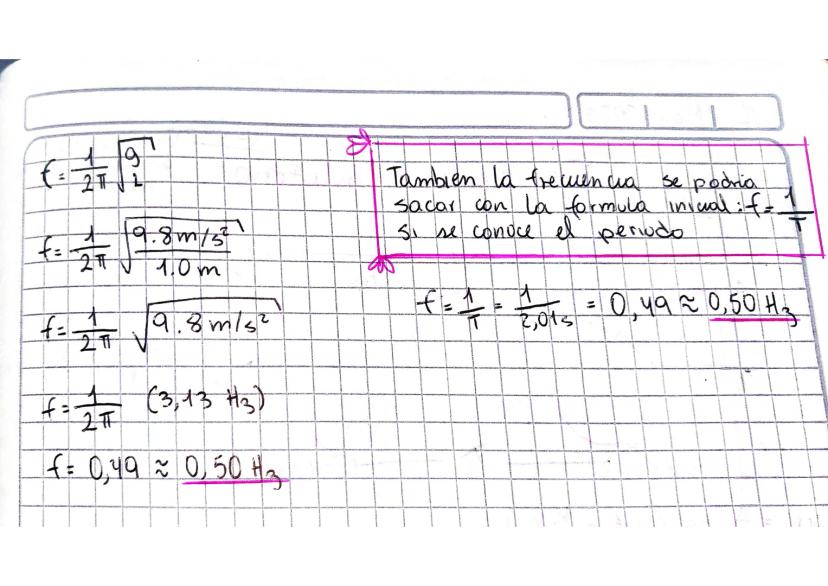 f = 1/2π √g/L
f = 1/2π √9.8 m/s²/1.0 m
f = 1/2π √9.8 m/s²
f = 1/2π (3,13 Hz)
f = 0,49 ≈ 0,50 Hz
Tambien la frecuencia se podria
sacar con la formula inicial: f = 1/T
si se conoce el periodo
f = 1/T = 1/2,01s = 0,49 ≈ 0,50 Hz